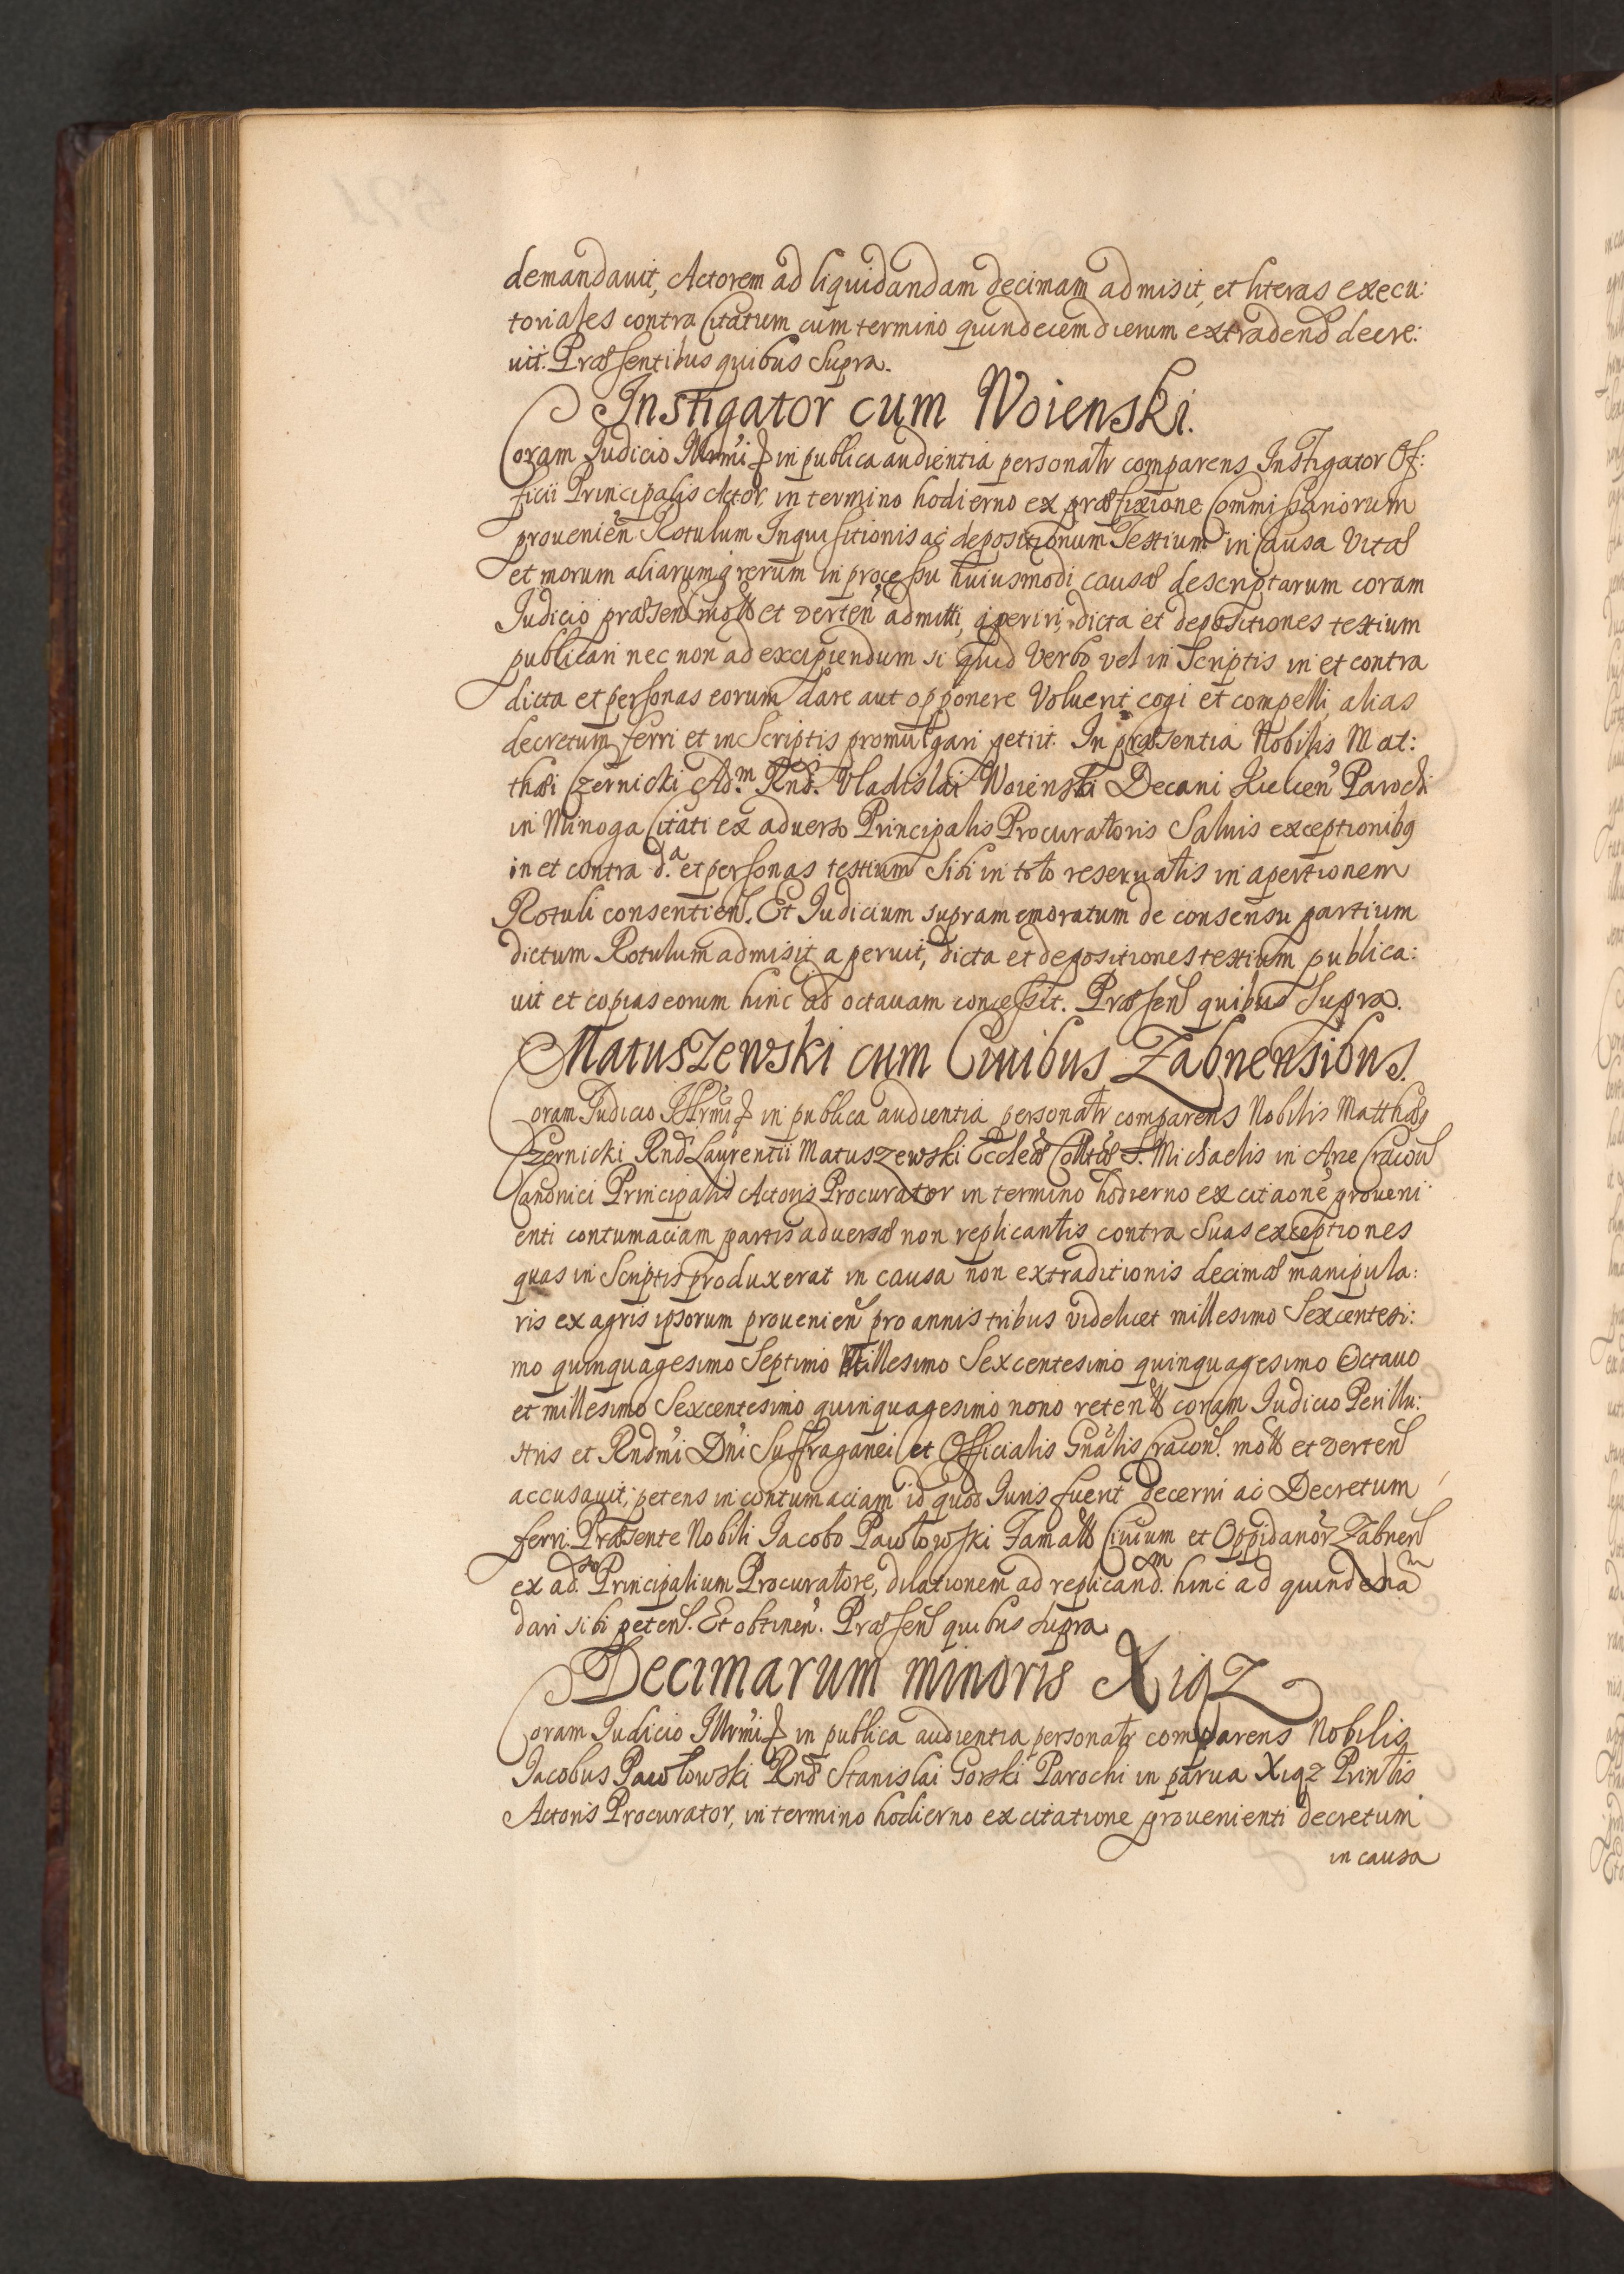 demandauit, Actorem ad liquidandam decimam admisit, et literas execu:
toriales contra Citatum cum termino quindecem dierum extradend decre:
uit. Præsentibus quibus Supra.
Instigator cum Woienski.
Coram Judicio Illrmi & in publica audientia personatr comparens Instigator Of:
ficii Principalis Actor, in termino hodierno ex præfixione Commissariorum
prouenien Rotulum Inquisitionis ac depositionum Testium in Causa Vitæ
et morum aliarumq rerum in processu huiusmodi causæ descriptarum coram
Judicio præsen mott et verten admitti, aperiri, dicta et depositiones testium
publicari nec non ad excipiendum si quid Verbo vel in Scriptis in et contra
dicta et personas eorum dare aut opponere Voluerit cogi et compelli, alias
decretum ferri et in Scriptis promulgari petiit. In præsentia Nobilis Mat:
thæi Czernicki Adm. Rnd. Vladislai Woienski Decani Kielcen Parochi
in Minoga Citati ex aduerso Principalis Procuratoris Saluis exceptionibq
in et contra da. et personas testium Sibi in toto reseruatis in apertionem
Rotuli consentien. Et Judicium supramemoratum de consensu partium
dictum Rotulum admisit aperuit, dicta et depositiones testium publica:
uit et copias eorum hinc ad octauam concessit. Præsen quibus Supra.
Matuszewski cum Ciuibus Zabnensibus.
Coram Judicio Illrmi & in publica audientia personatr comparens Nobilis Matthæq
Czernicki Rnd Laurentii Matuszewski Eccleæ Colltæ S. Michaelis in Arce Cracou
Canonici Principalis Actoris Procurator in termino hodierno ex citaone proueni
enti contumaciam partis aduersæ non replicantis contra Suas exceptiones
quas in Scriptis produxerat in causa non extraditionis decimæ manipula:
ris ex agris ipsorum prouenien pro annis tribus videlicet millesimo Sexcentesi:
mo quinquagesimo Septimo Millesimo Sexcentesimo quinquagesimo Octauo
et millesimo Sexcentesimo quinquagesimo nono retentt coram Judicio Perillu:
stris et Rndmi Dni Suffraganei et Officialis Gnalis Cracon. mott et verten
accusauit, petens in contumaciam id quod Juris fuerit decerni ac Decretum
ferri. Præsente Nobili Jacobo Pawłowski Famatt Ciuium et Oppidanor Zabnen
ex adso. Principalium Procuratore, dilationem ad replicandm. hinc ad quindenam
dari sibi peten. Et obtinen. Præsen quibus supra
Decimarum minoris Xiąz
Coram Judicio Illrmi & in publica audientia personatr comparens Nobilis
Jacobus Pawłowski Rnd Stanislai Gorski Parochi in parua Xiąz Prinlis
Actoris Procurator, in termino hodierno ex citatione prouenienti decretum
in causa